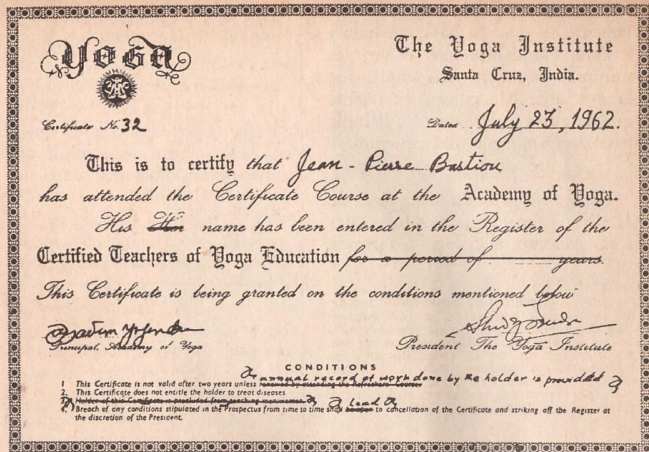 YOGA
The Yoga Institute
Santa Cruz, India.
Certificate No. 32
Dated July 23, 1962.
This is to certify that Jean-Pierre Bastiou
has attended the Certificate Course at the Academy of Yoga.
His Her name has been entered in the Register of the
Certified Teachers of Yoga Education for a period of years.
This Certificate is being granted on the conditions mentioned below
Principal, Academy of Yoga
President The Yoga Institute
CONDITIONS
annual record of work done by the holder is provided
1 This Certificate is not valid after two years unless renewed by attending the Refreshers Course
2. This Certificate does not entitle the holder to treat diseases
3. Holder of this Certificate is precluded from teaching
lead
4. Breach of any conditions stipulated in the Prospectus from time to time shall to cancellation of the Certificate and striking off the Register at
the discretion of the President.